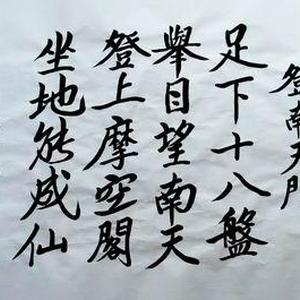 登南天門
足下十八盤
舉目望南天
登上摩空閣
坐地能成仙